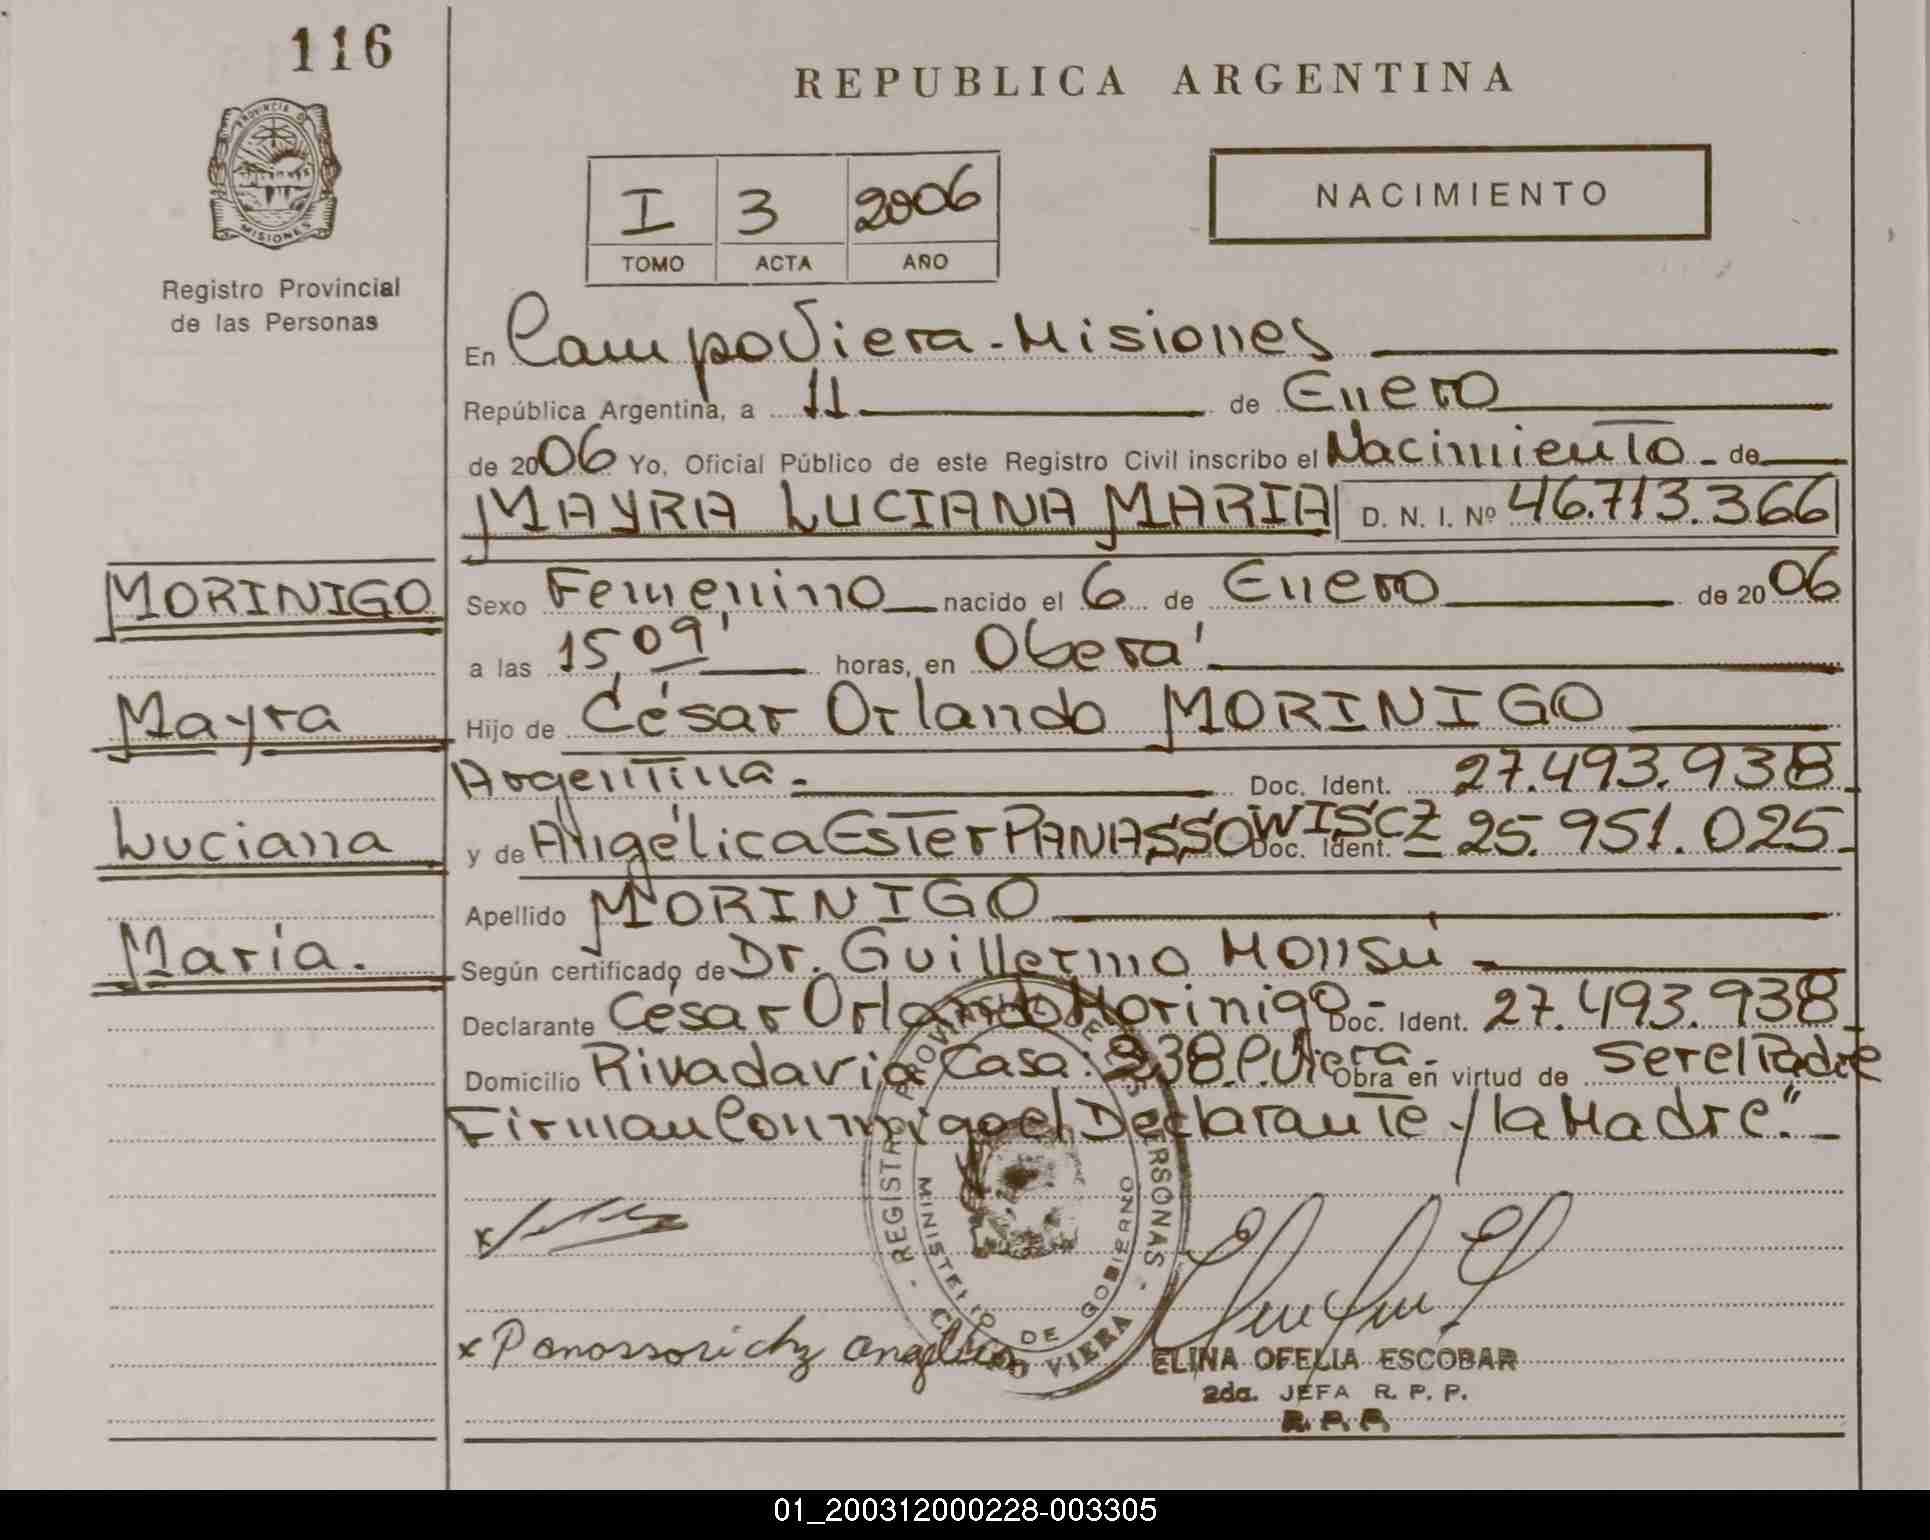 116
REPUBLICA ARGENTINA
PROVINCIA D
MISIONES
Registro Provincial
de las Personas
I 3 2006
TOMO ACTA AÑO
NACIMIENTO
En Campo Viera - Misiones
República Argentina, a 11 de Enero
de 2006 Yo, Oficial Público de este Registro Civil inscribo el Nacimiento - de
MAYRA LUCIANA MARIA D. N. I. Nº 46.713.366
MORINIGO
Sexo Femenino nacido el 6 de Enero de 2006
a las 15 09' horas, en Oberá
Mayra
Hijo de César Orlando MORINIGO
Argentina.- Doc. Ident. 27.493.938
Luciana
y de Angélica Ester PANASSOWISCZ Doc. Ident. 25.951.025-
Apellido MORINIGO
María.
Según certificado de Dr. Guillermo Monsú
Declarante César Orlando Morinigo- Doc. Ident. 27.493.938
Domicilio Rivadavia Casa: 238. C. Viera- Obra en virtud de Ser el Padre
Firman Conmigo el Declarante y la Madre".-
REGISTRO PROVINCIAL DE LAS PERSONAS
MINISTERIO DE GOBIERNO
CAMPO VIERA
x
x Panassovichz Angelica
ELINA OFELIA ESCOBAR
2da. JEFA R. P. P.
R. P. P.
01_200312000228-003305